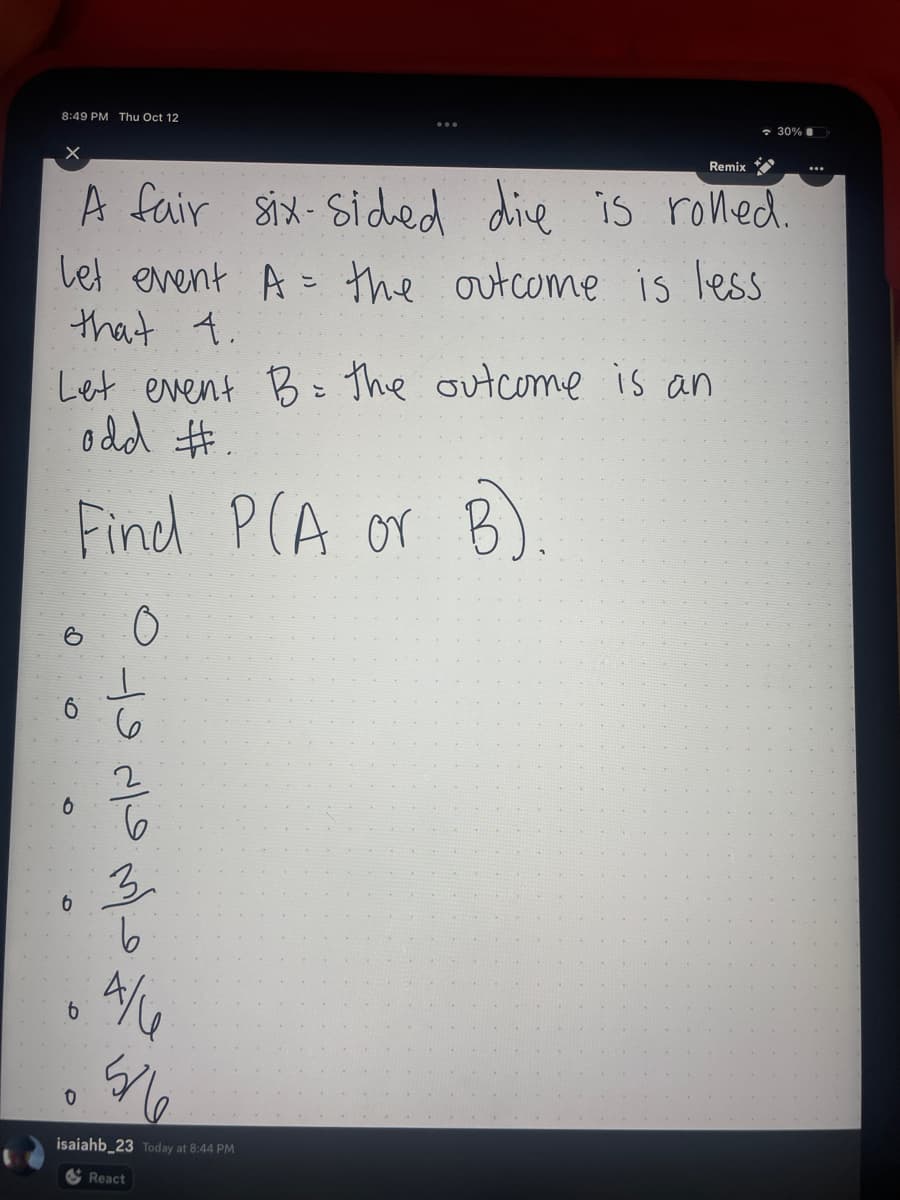 8:49 PM Thu Oct 12
30%
Remix
A fair six-sided die is rolled.
Let event A = the outcome is less
that 4.
Let event B = the outcome is an
odd #.
Find P(A or B).
0
1/6
2/6
3/6
4/6
5/6
isaiahb_23 Today at 8:44 PM
React